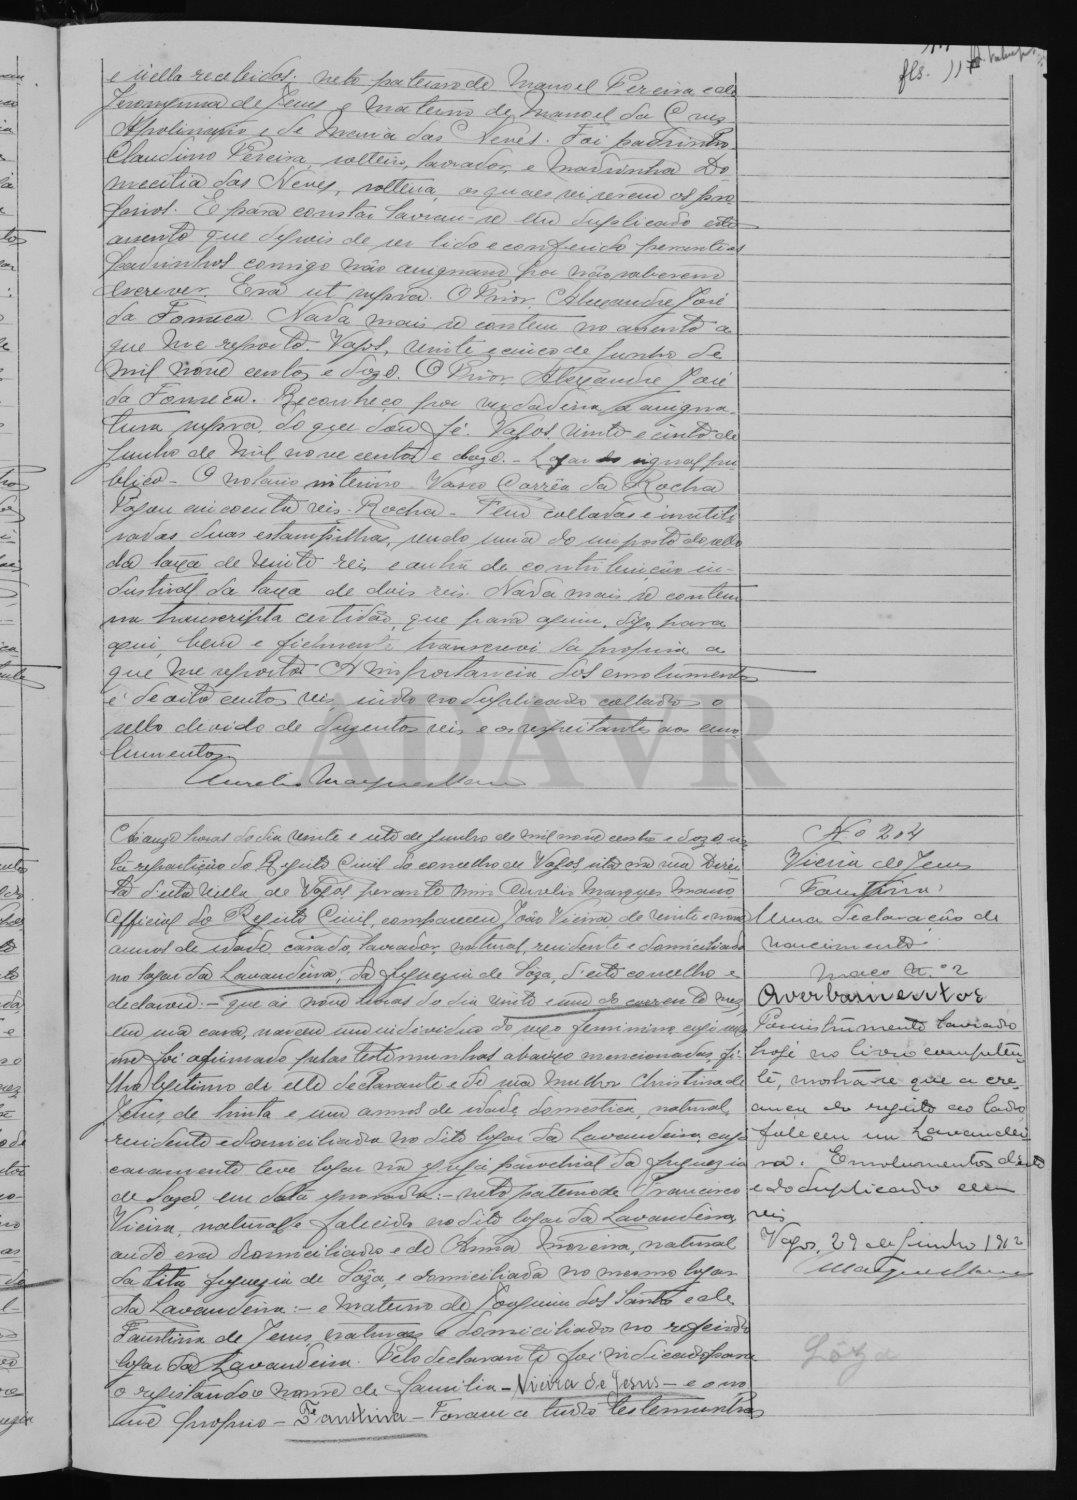 fls. 117
e n'ella recebidos: neto paterno de Manoel Pereira e de
Jeronyma de Jesus e materno de Manoel da Cruz
Apolinario e de Maria das Neves. Foi padrinho
Claudino Pereira, solteiro, lavrador, e madrinha Do-
mecilia das Neves, solteira, os quaes sei serem os pro-
prios. E para constar lavrou-se em duplicado este
assento que depois de ser lido e conferido perante os
padrinhos comigo não assignam por não saberem
escrever. Era ut supra. O Prior Alexandre José
da Fonseca. Nada mais se contem no assento a
que me reporto. Vagos, vinte e cinco de Junho de
mil nove centos e doze. O Prior Alexandre José
da Fonseca. Reconheço por verdadeira a assigna-
tura supra do que dou fé. Vagos vinte e cinco de
Junho de mil nove centos e doze. - Logar do signal pu-
blico - O notario interino - Vasco Corrêa da Rocha
Pagou cincoenta reis. Rocha - Tem colladas e inutili-
sadas duas estampilhas, sendo uma do imposto do sello
da taxa de vinte reis e outra de contribuição in-
dustrial da taxa de dois reis. Nada mais se contem
na transcripta certidão, que para aqui, digo, para
aqui, bem e fielmente transcrevi da propria a
que me reporto. A importancia dos emolumentos
é de oito centos reis, indo no duplicado collado o
sello devido de duzentos reis e os respeitantes aos emo-
lumentos.
Aurelio Marques Mano
Ás onze horas do dia vinte e oito de Junho de mil nove centos e doze, n'es-
ta repartição do Registo Civil do concelho de Vagos, sita na rua Direi-
ta d'esta Villa de Vagos, perante mim Aurelio Marques Mano
Official do Registo Civil, compareceu João Vieira, de vinte e nove
annos de idade, casado, lavrador, natural, residente e domiciliado
no logar da Lavandeira, da freguezia de Sôza, d'este concelho e
declarou: - que ás nove horas do dia vinte e um do corrente mez,
em sua casa, nasceu um individuo do sexo feminino, cujo no-
me foi afirmado pelas testemunhas abaixo mencionadas, fi-
lha legitima de elle declarante e de sua mulher Christina de
Jesus, de trinta e um annos de idade, domestica, natural,
residente e domiciliada no dito logar da Lavandeira, cujo
casamento teve logar na igreja parochial da freguezia
de Soza, em data ignorada: - neto paterno de Francisco
Vieira, natural e falecido no dito logar da Lavandeira,
aonde era domiciliado e de Anna Moreira, natural
da dita freguezia de Sôza, e domiciliada no mesmo logar
da Lavandeira: - e materno de Joaquim dos Santos e de
Faustina de Jesus, naturaes e domiciliados no referido
logar da Lavandeira. Pelo declarante foi indicado para
o registando o nome de familia - Vieira de Jesus - e o no-
me proprio - Faustina - Foram a tudo testemunhas
N.º 204
Vieira de Jesus
(Faustina)
Uma declaração de
nascimento
Maço n.º 2
Averbamentos
Por instrumento lavrado
hoje no livro competen-
te, mostra-se que a cre-
ança do registo ao lado
faleceu na Lavandei-
ra. Emolumentos d'este
e do duplicado cem
reis
Vagos, 29 de Junho 1912
Marques Mano
Sôza
ADAVR